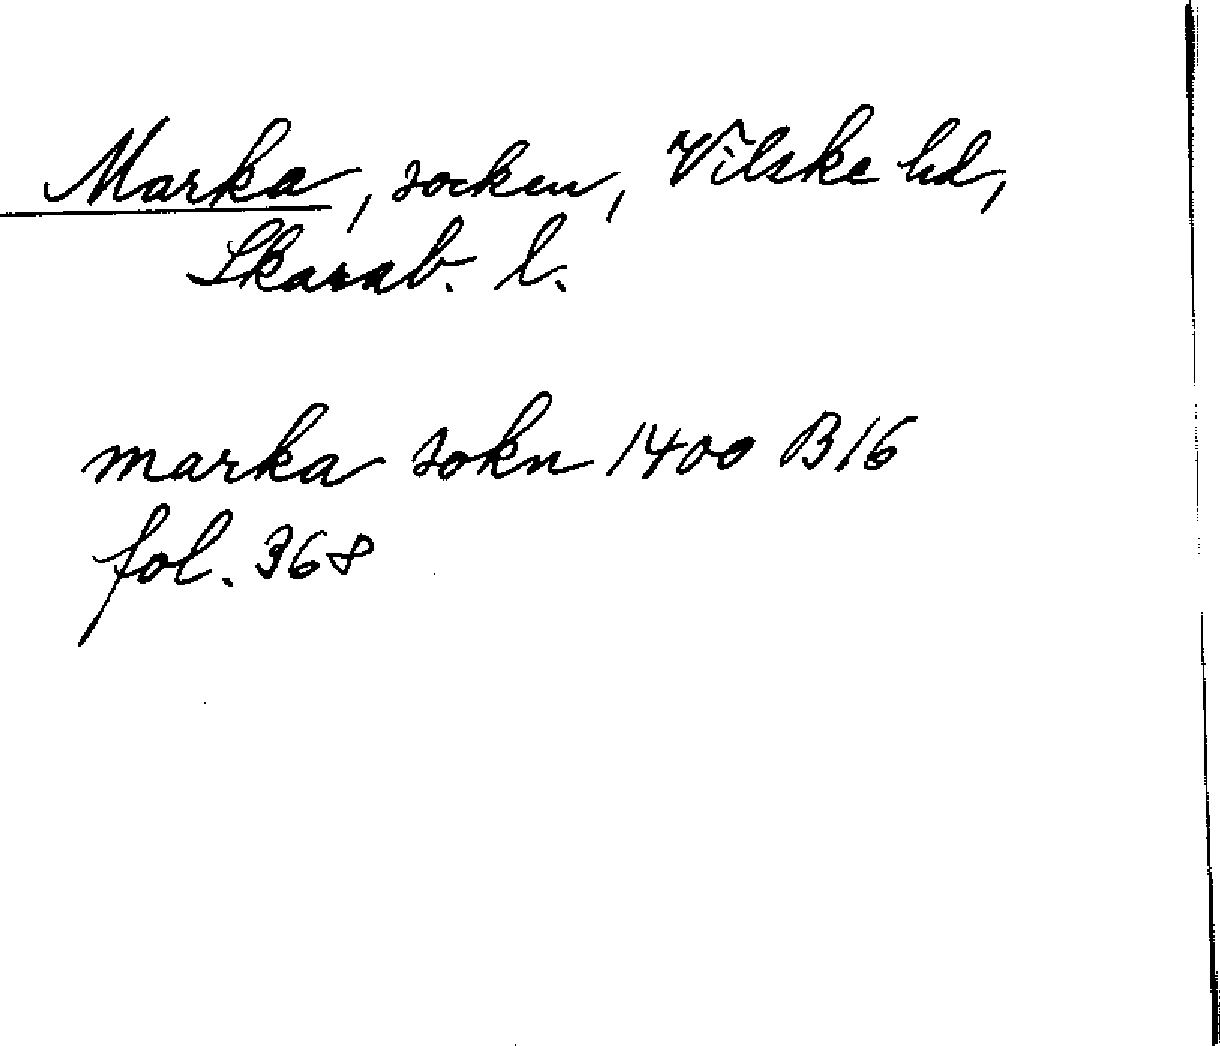 Marka, socken, Vilske hd,
Skarab. l.
marka sokn 1400 B16
fol. 368